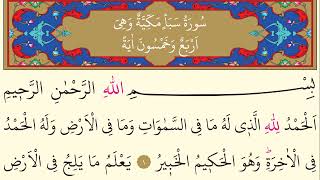 سُورَةُ سَبَأٍ مَكِّيَّةٌ وَهِيَ
اَرْبَعٌ وَخَمْسُونَ اٰيَةً
بِسْمِ اللهِ الرَّحْمٰنِ الرَّحٖيمِ
اَلْحَمْدُ لِلّٰهِ الَّذٖى لَهُ مَا فِى السَّمٰوَاتِ وَمَا فِى الْاَرْضِ وَلَهُ الْحَمْدُ
فِى الْاٰخِرَةِۜ وَهُوَ الْحَكٖيمُ الْخَبٖيرُ ١ يَعْلَمُ مَا يَلِجُ فِى الْاَرْضِ